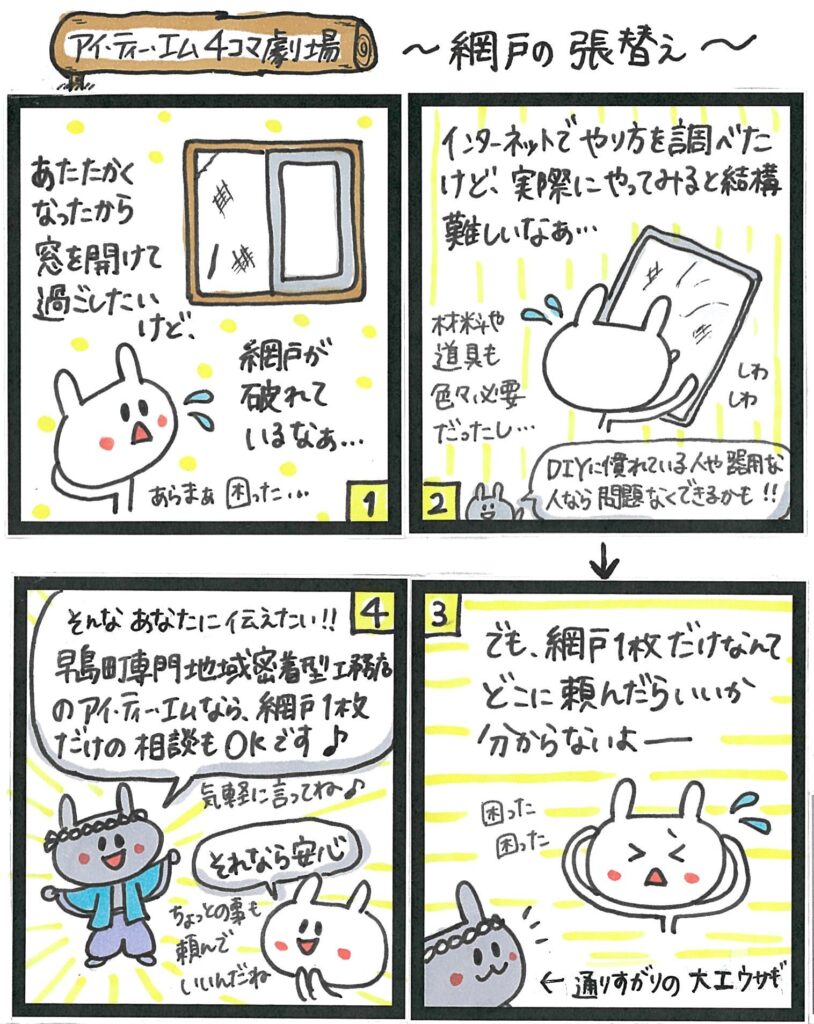 アイ・ティー・エム4コマ劇場
～網戸の張替え～
あたたかく
なったから
窓を開けて
過ごしたい
けど、
網戸が
破れて
いるなぁ…
あらまぁ 困った…
1
インターネットでやり方を調べた
けど、実際にやってみると結構
難しいなぁ…
材料や
道具も
色々必要
だったし…
しわ
しわ
DIYに慣れている人や器用な
人なら問題なくできるかも!!
2
3
でも、網戸1枚だけなんて
どこに頼んだらいいか
分からないよー
困った
困った
←通りすがりの大工ウサギ
4
そんなあなたに伝えたい!!
早島町専門地域密着型工務店
のアイ・ティー・エムなら、網戸1枚
だけの相談もOKです♪
気軽に言ってね♪
それなら安心
ちょっとの事も
頼んで
いいんだね